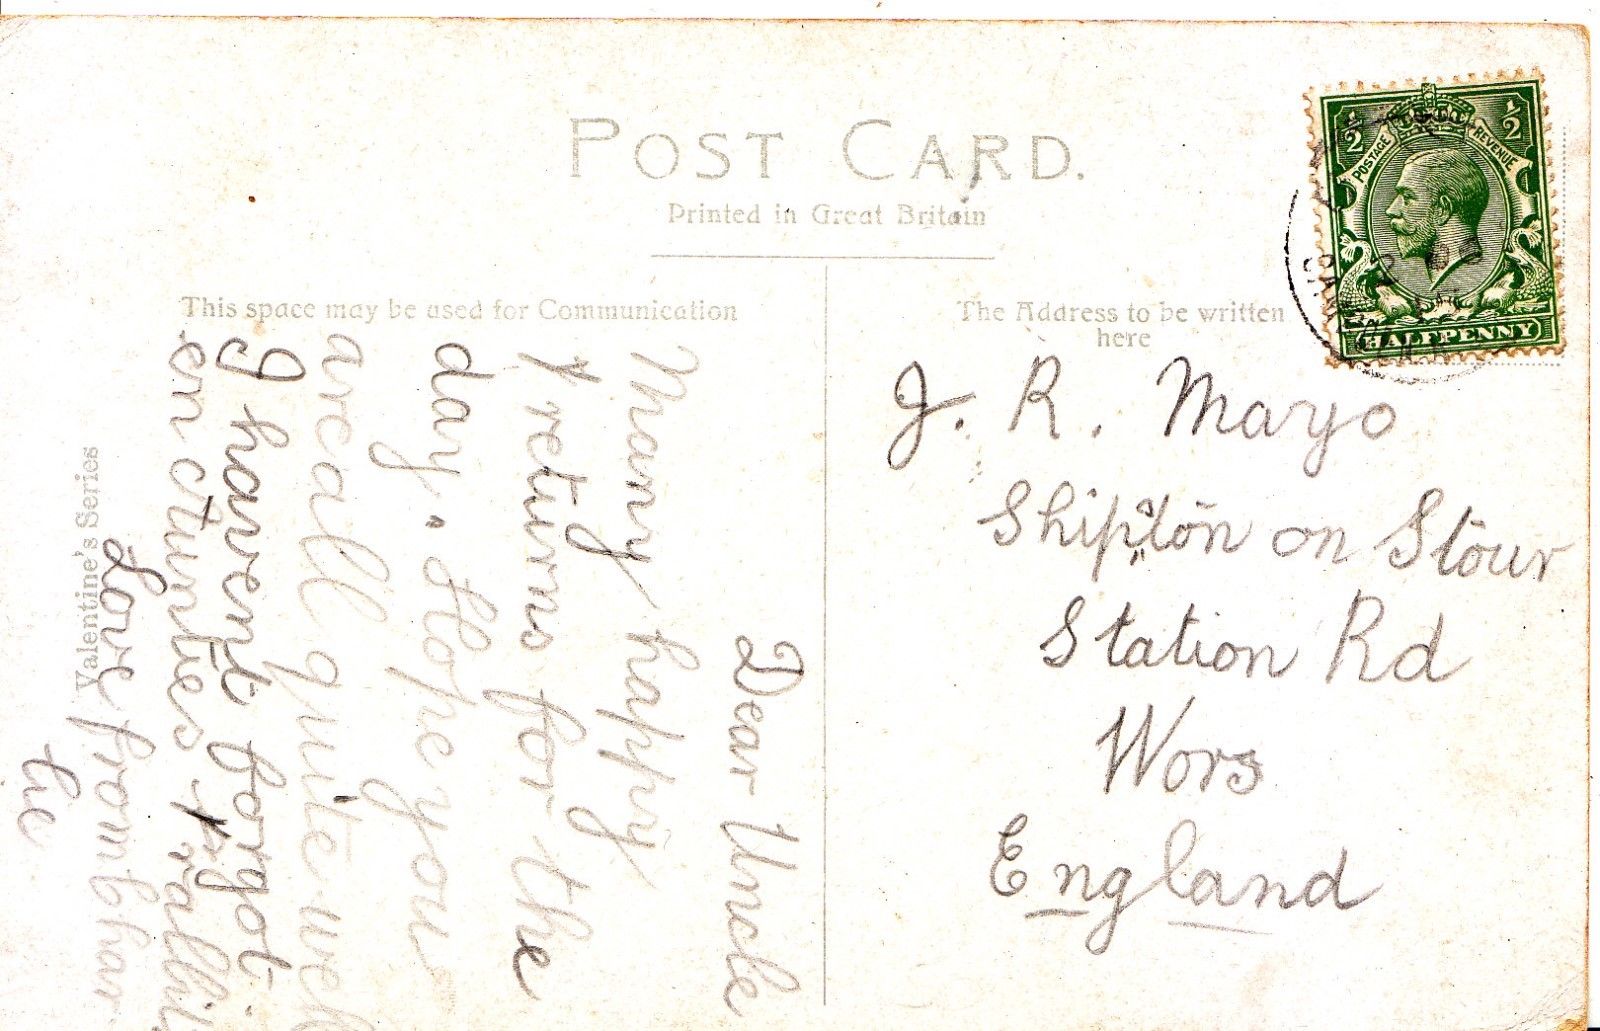 POST CARD.
Printed in Great Britain
This space may be used for Communication
The Address to be written
here
½ ½
POSTAGE REVENUE
HALFPENNY
J. R. Mayo
Shipton on Stour
Station Rd
Wors
England
Dear Uncle
Many happy
returns for the
day. Hope you
are all quite well
I havent forgot
love from Char
lie
Valentine's Series